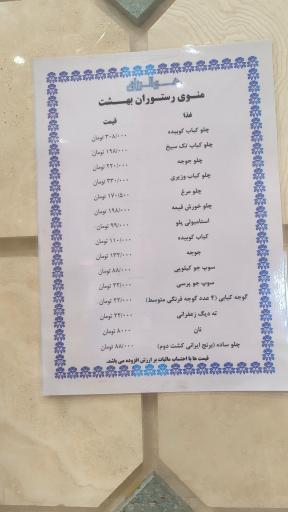 هوالرزاق
منوی رستوران بهشت
غذا قیمت
چلو کباب کوبیده ۳۰۸/۰۰۰ تومان
چلو کباب تک سیخ ۱۹۸/۰۰۰ تومان
چلو جوجه ۲۲۰/۰۰۰ تومان
چلو کباب وزیری ۳۳۰/۰۰۰ تومان
چلو مرغ ۱۷۰/۵۰۰ تومان
چلو خورش قیمه ۱۹۸/۰۰۰ تومان
استانبولی پلو ۹۹/۰۰۰ تومان
کباب کوبیده ۱۱۰/۰۰۰ تومان
جوجه ۱۳۲/۰۰۰ تومان
سوپ جو کیلویی ۸۸/۰۰۰ تومان
سوپ جو پرسی ۲۲/۰۰۰ تومان
گوجه کبابی (۴ عدد گوجه فرنگی متوسط) ۲۲/۰۰۰ تومان
ته دیگ زعفرانی ۲۲/۰۰۰ تومان
نان ۸۰۰۰ تومان
چلو ساده (برنج ایرانی کشت دوم) ۸۸/۰۰۰ تومان
قیمت ها با احتساب مالیات بر ارزش افزوده می باشد.